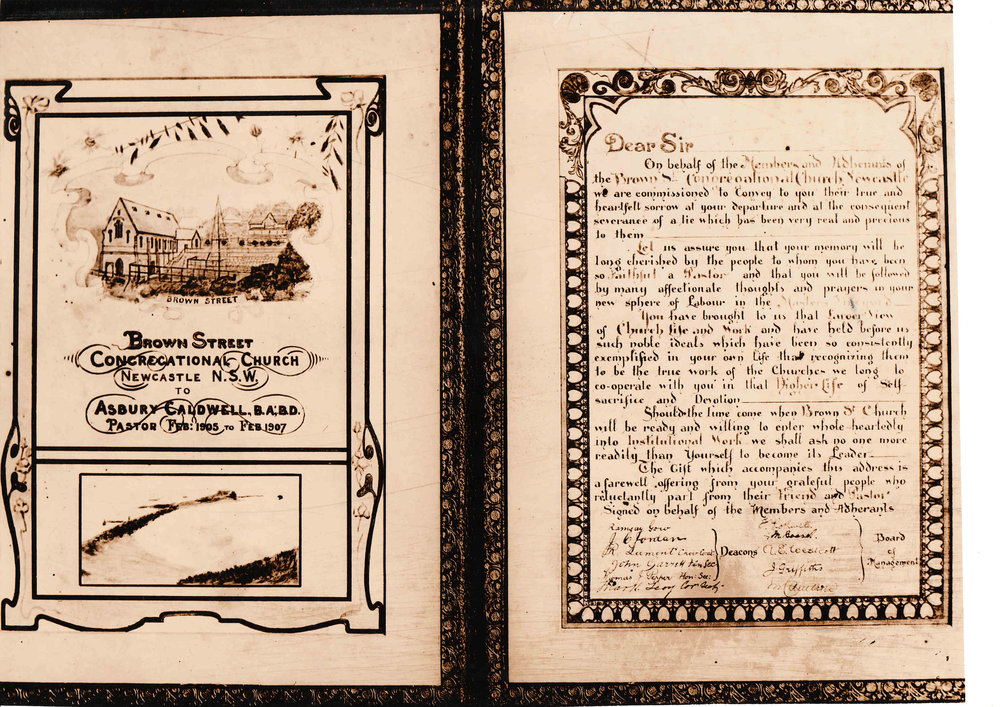 BROWN STREET
BROWN STREET
CONGREGATIONAL CHURCH
NEWCASTLE N.S.W.
TO
ASBURY CALDWELL. B.A; B.D.
PASTOR FEB: 1905 TO FEB 1907
Dear Sir
On behalf of the Members and Adherants of
the Brown St. Congregational Church Newcastle
we are commissioned to Convey to you their true and
heartfelt sorrow at your departure and at the consequent
severance of a tie which has been very real and precious
to them
Let us assure you that your memory will be
long cherished by the people to whom you have been
so Faithful a Pastor and that you will be followed
by many affectionate thoughts and prayers in your
new sphere of Labour in the Master's Vineyard
You have brought to us that Larger View
of Church Life and Work and have held before us
such noble ideals which have been so consistently
exemplified in your own Life that recognizing them
to be the true work of the Churches we long to
co-operate with you in that Higher Life of Self-
sacrifice and Devotion
Should the time come when Brown St Church
will be ready and willing to enter whole-heartedly
into Institutional Work we shall ask no one more
readily than Yourself to become its Leader
The Gift which accompanies this address is
a farewell offering from your grateful people who
reluctantly part from their Friend and Pastor
Signed on behalf of the Members and Adherants
Ramsay Gow
J C Jordan
R Lamont
John Garrett Hon Sec
Thomas J Hon: Sec:
Mark Levy
Deacons
J Griffiths
Board
of
Management